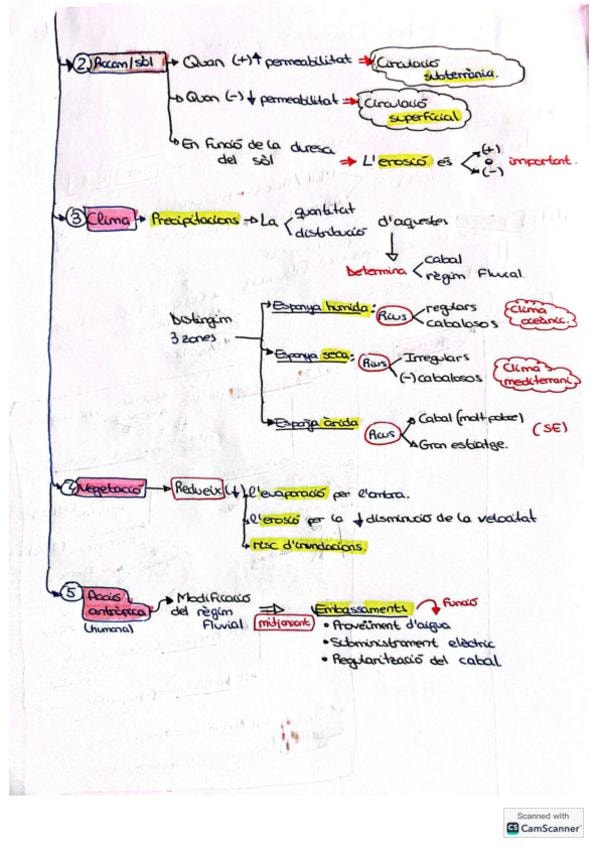 ② Rocam/sòl → Quan (+)↑ permeabilitat → Circulació subterrània.
Quan (-)↓ permeabilitat → Circulació superficial
En funció de la duresa del sòl → L'erosió és (+) o (-) important.
③ Clima → Precipitacions → La quantitat distribució d'aquestes
Determina cabal règim fluvial.
Distingim 3 zones
Espanya humida: Rius regulars cabalosos Clima oceànic.
Espanya seca: Rius Irregulars (-) cabalosos Clima mediterrani.
Espanya àrida Rius Cabal (molt pobre) Gran estiatge. (SE)
④ Vegetació → Redueix (↓) l'evaporació per l'ombra.
l'erosió per la ↓ disminució de la velocitat
risc d'inundacions.
⑤ Acció antròpica (humana) → Modificació del règim fluvial ⇒ mitjançant Embassaments Funció
• Proveïment d'aigua
• Subministrament elèctric
• Regularització del cabal
Scanned with
CS CamScanner